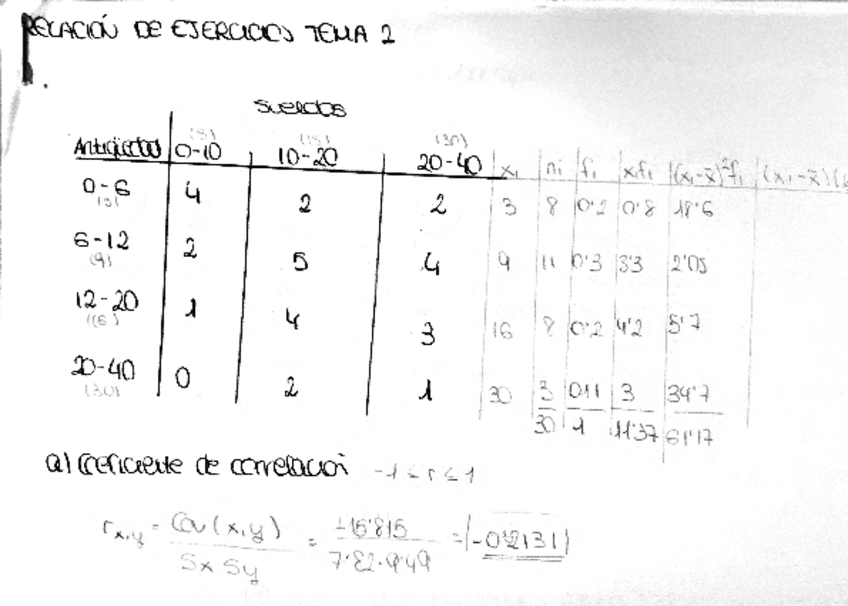 RELACIÓN DE EJERCICIOS TEMA 2
1.
Sueldos
Antigüedad 0-10 (5) 10-20 (15) 20-40 (30) xi ni fi xifi (xi-x̄)²fi (xi-x̄)(y
0-6 (3) 4 2 2 3 8 0'2 0'8 18'6
6-12 (9) 2 5 4 9 11 0'3 3'3 2'05
12-20 (16) 1 4 3 16 8 0'2 4'2 5'7
20-40 (30) 0 2 1 30 3 0'11 3 34'7
30 1 11'37 61'17
a) Coeficiente de correlación -1 ≤ r ≤ 1
rx,y = Cov(x,y) / Sx Sy = -15'815 / 7'82·9'49 = |-0'2131|